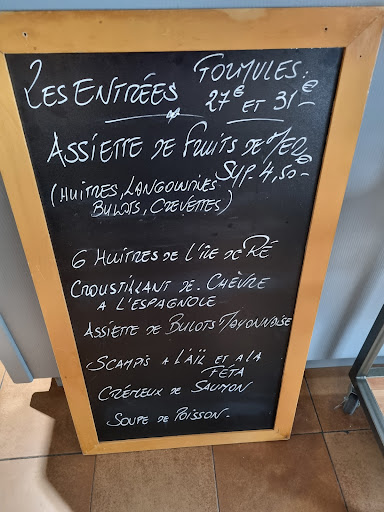 Les Entrées
Formules:
27€ et 31€
Assiette de Fruits de Mer
(Huitres, Langoustines Sup. 4,50€
Bulots, Crevettes)
6 Huitres de l'île de Ré
Croustillant de Chèvre
a l'espagnole
Assiette de Bulots Mayonnaise
Scampis a l'aïl et a la
Feta
Crémeux de Saumon
Soupe de Poisson